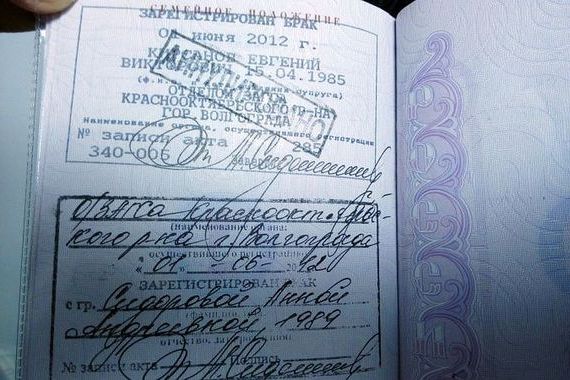 СЕМЕЙНОЕ ПОЛОЖЕНИЕ
ЗАРЕГИСТРИРОВАН БРАК
01 июня 2012 г.
ЕВГЕНИЙ
15.04.1985
ОТДЕЛОМ
КРАСНООКТЯБРЬСКОГО Р-НА
ГОР. ВОЛГОГРАДА
Наименование органа, осуществившего регистрации
№ записи акта 285
340-006 Заверено
О/ЗАГСа Краснооктябрьс-
кого р-на г. Волгограда
(наименование органа,
осуществившего регистрацию)
"01" - 06 - 2012
ЗАРЕГИСТРИРОВАН БРАК
с гр. Сидоровой Анной
Андреевной, 1989
отчество, дата рождения
№ записи акта Подпись